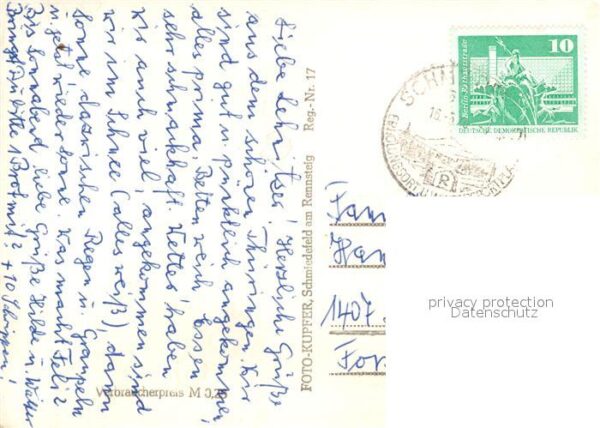 Liebe Lehnitser! Herzliche Grüße
aus dem schönen Thüringen. Wir
sind gut u. pünktlich angekommen,
alles prima. Betten weich, Essen
sehr schmackhaft. Wetter haben
wir auch viel, angekommen sind
wir im Schnee (alles weiß), dann
Sonne dazwischen Regen u. Graupeln
u. jetzt wieder Sonne. Was macht Feli?
Bis Sonnabend, liebe Grüße Hilde u. Walter
Bringt Du bitte 1 Brot mit? + 10 Schrippen!
Verbraucherpreis M 0,25
FOTO-KUPFER, Schmiedefeld am Rennsteig Reg.-Nr. 17
10
Berlin-Rathausstraße
DEUTSCHE DEMOKRATISCHE REPUBLIK
Fam
Han
1407
For
privacy protection
Datenschutz